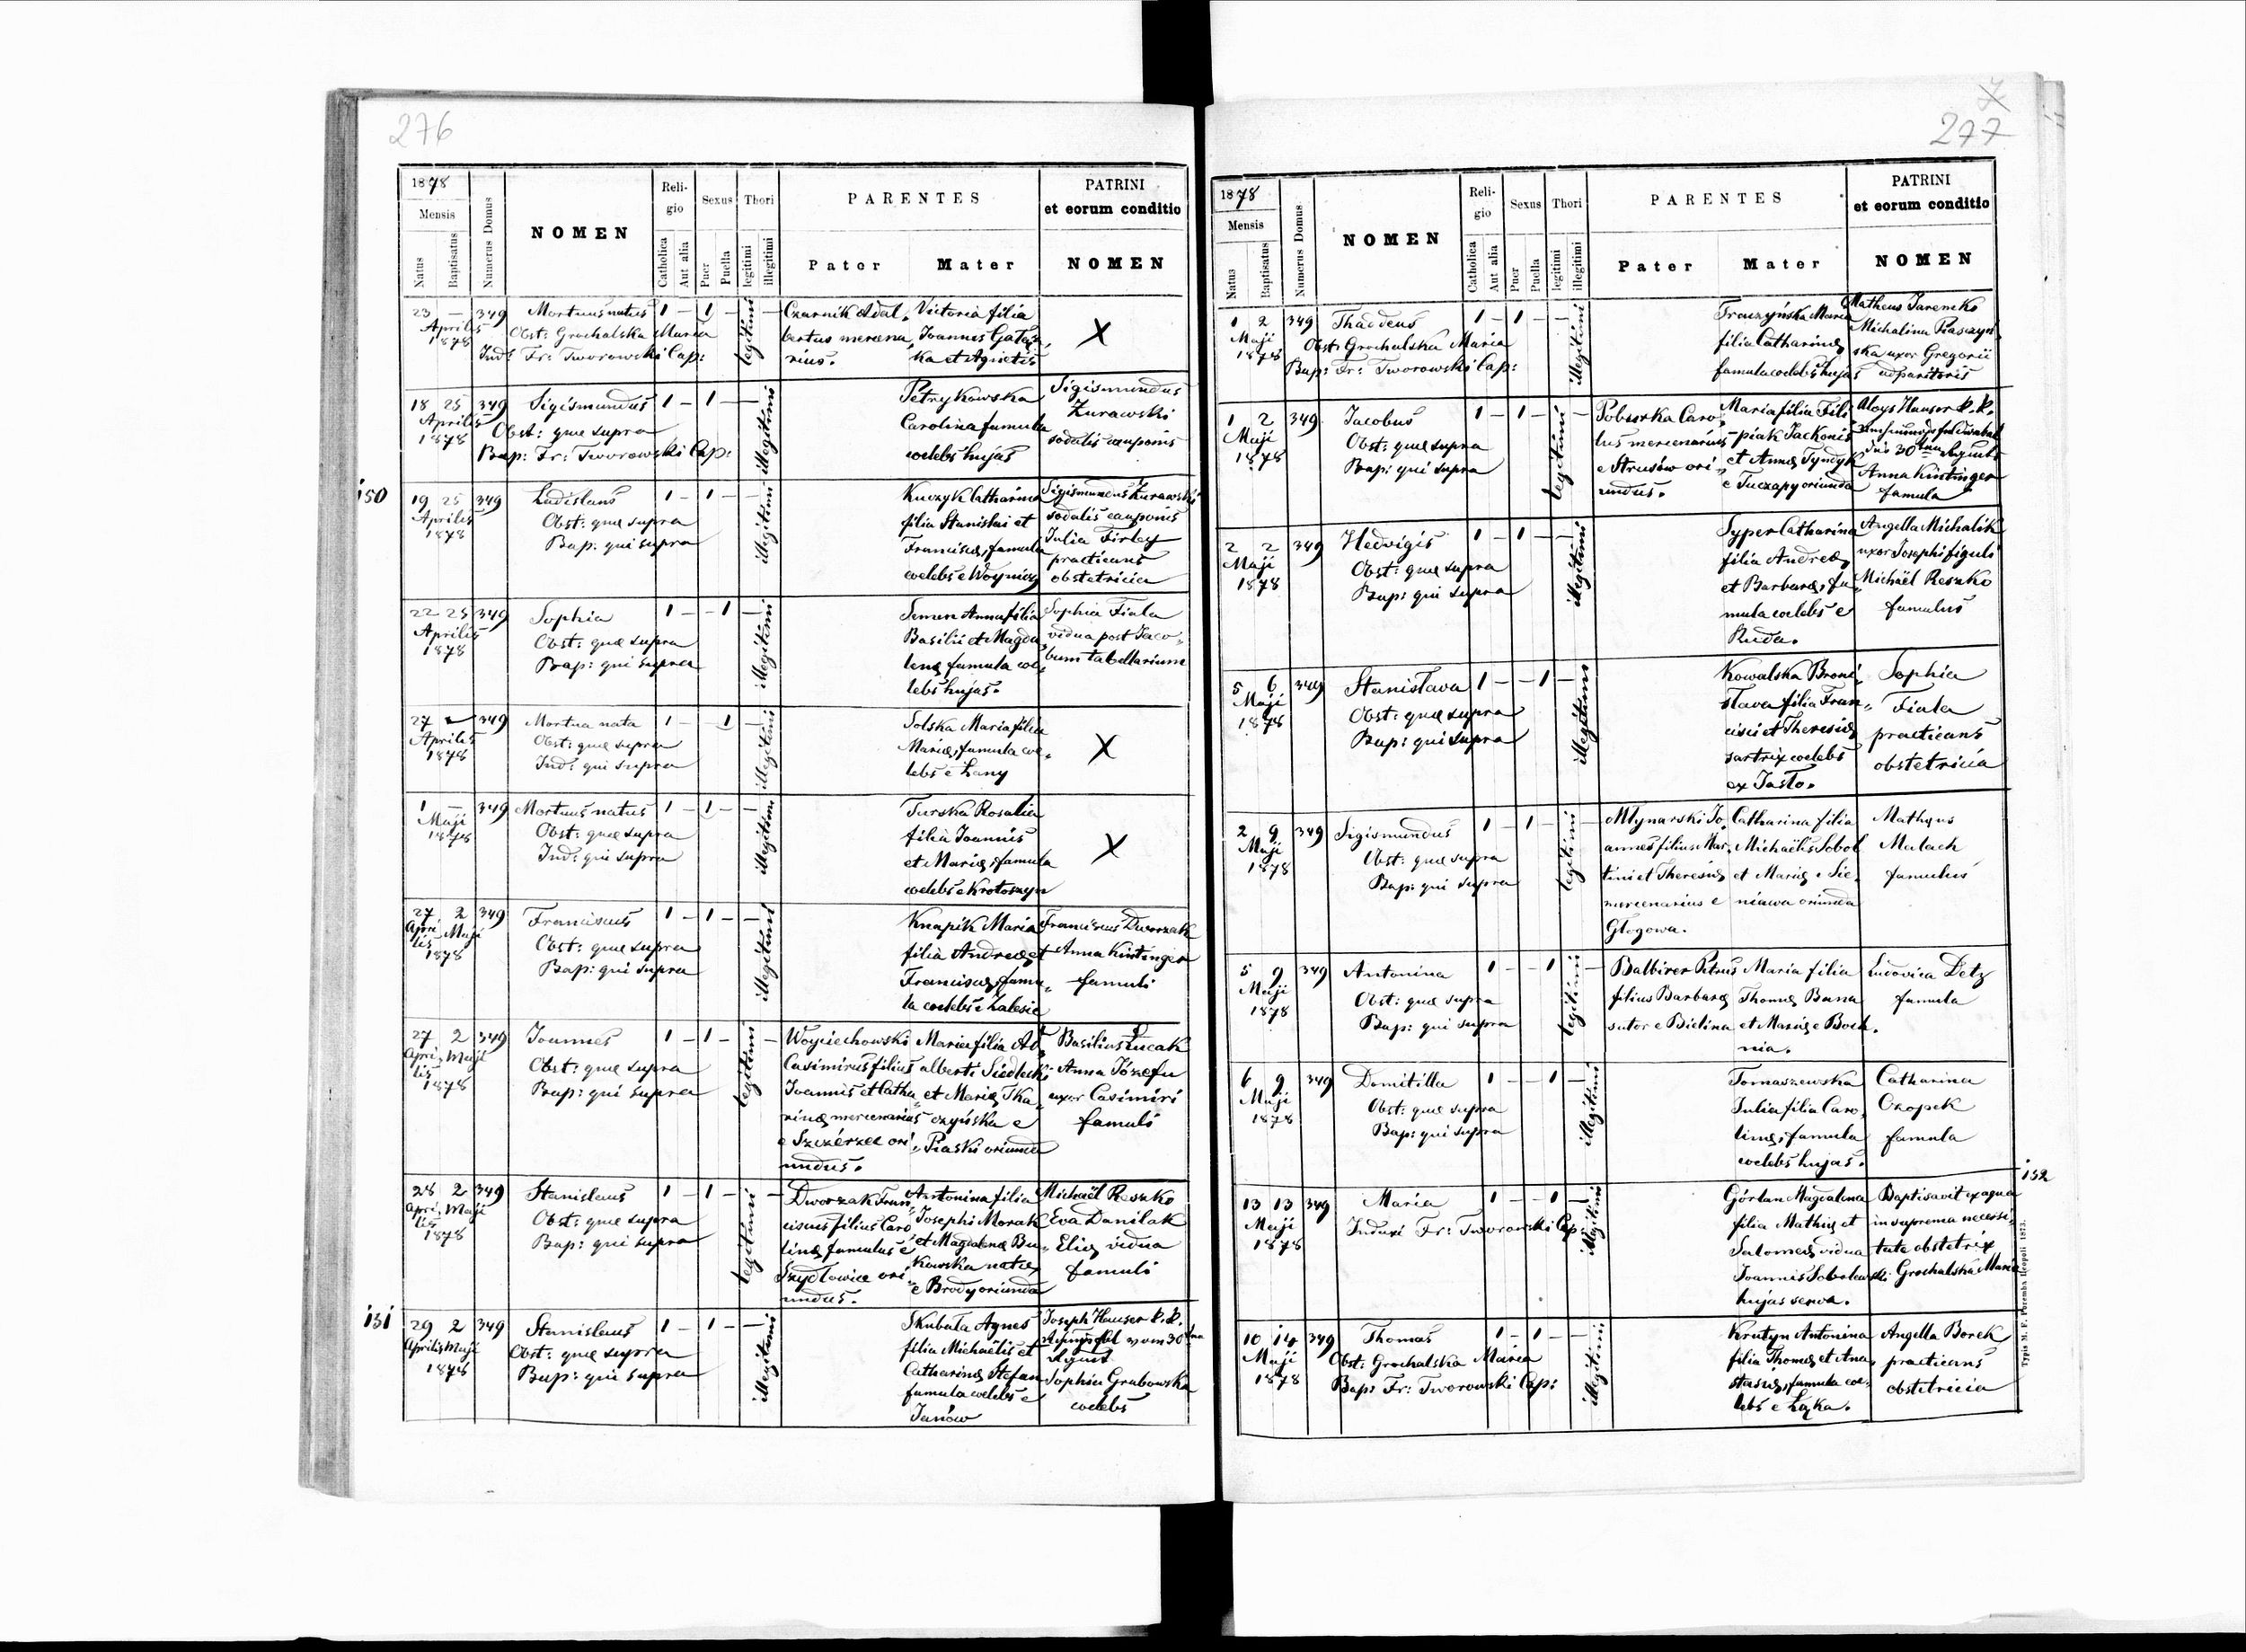 276
1878
Mensis
Natus
Baptisatus
Numerus Domus
NOMEN
Reli-
gio
Catholica
Aut alia
Sexus
Puer
Puella
Thori
legitimi
illegitimi
PARENTES
Pater
Mater
PATRINI
et eorum conditio
NOMEN
23 — 349 Mortuus natus 1 — 1 — legitimi —
Aprilis
1878
Obst: Grochalska Maria
Ind: Fr: Tworowski Cap:
Czarnik Adal„
bertus mercena„
rius.
Victoria filia
Joannis Gałąz„
ka et Agnetis
X
18 25 349 Sigismundus 1 — 1 — — illegitimi
Aprilis
1878
Obst: quæ supra
Bap: Fr: Tworowski Cap:
Petrykowska
Carolina famula
coelebs hujas
Sigismundus
Żurawski
sodalis cauponis
150
19 25 349 Ladislaus 1 — 1 — — illegitimi
Aprilis
1878
Obst: quæ supra
Bap: qui supra
Kuczyk Catharina
filia Stanislai et
Franciscæ, famula
coelebs e Woynicz
Sigismundus Żurawski
sodalis cauponis
Julia Firley
practicans
obstetricia
22 25 349 Sophia 1 — — 1 — illegitimi
Aprilis
1878
Obst: quæ supra
Bap: qui supra
Semen Anna filia
Basilii et Magda„
lenæ famula coe„
lebs hujas.
Sophia Fiala
vidua post Jaco„
bum tabellarium
27 — 349 Mortua nata 1 — 1 — illegitimi
Aprilis
1878
Obst: quæ supra
Ind: qui supra
Solska Maria filia
Mariæ, famula coe„
lebs e Łany
X
1 — 349 Mortuus natus 1 — 1 — — illegitimi
Maji
1878
Obst: quæ supra
Ind: qui supra
Turska Rosalia
filia Joannis
et Mariæ, famula
coelebs e Krotoszyn
X
27 2 349 Franciscus 1 — 1 — — illegitimi
Apri„ Maji
lis
1878
Obst: quæ supra
Bap: qui supra
Knapik Maria
filia Andreæ et
Franciscæ, famu„
la coelebs e Zalesie
Franciscus Dworzak
Anna Kintinger
famuli
27 2 349 Joannes 1 — 1 — legitimi —
Apri„ Maji
lis
1878
Obst: quæ supra
Bap: qui supra
Woyciechowski
Casimirus filius
Joannis et Catha„
rinæ mercenarius
e Szczérzec ori„
undus.
Maria filia Ad„
alberti Siedlecki
et Mariæ Tka„
czyńska e
Piaski oriunda
Basilius Łucak
Anna Józefu
uxor Casimiri
famuli
28 2 349 Stanislaus 1 — 1 — legitimi —
Apri„ Maji
lis
1878
Obst: quæ supra
Bap: qui supra
Dworzak Fran„
ciscus filius Caro„
linæ famulus e
Szydłowice ori„
undus.
Antonina filia
Josephi Morak
et Magdalenæ Bu„
kowska natæ,
e Brody oriunda
Michaël Reszko
Eva Danilak
Eliæ vidua
famuli
151
29 2 349 Stanislaus 1 — 1 — — illegitimi
Aprilis Maji
1878
Obst: quæ supra
Bap: qui supra
Skubała Agnes
filia Michaëlis et
Catharinæ Stefan
famula coelebs e
Janów
Joseph Hauser k. k.
vom 30ten
Sophia Grabowska
coelebs
7
277
1878
Mensis
Natus
Baptisatus
Numerus Domus
NOMEN
Reli-
gio
Catholica
Aut alia
Sexus
Puer
Puella
Thori
legitimi
illegitimi
PARENTES
Pater
Mater
PATRINI
et eorum conditio
NOMEN
1 2 349 Thaddeus 1 — 1 — — illegitimi
Maji
1878
Obst: Grochalska Maria
Bap: Fr: Tworowski Cap:
Maria
filia Catharinæ
famula coelebs hujas
Matheus Jaremko
Michalina
ska uxor Gregorii
adparitoris
1 2 349 Jacobus 1 — 1 — legitimi —
Maji
1878
Obst: quæ supra
Bap: qui supra
Poburka Caro„
lus mercenarius
e Strusów ori„
undus.
Maria filia Fili„
piak Jackonis
et Annæ Tyndyk
e Tuczapy oriunda
Aloys Hauser k. k.
30
Anna Kintinger
famula
2 2 349 Hedvigis 1 — 1 — — illegitimi
Maji
1878
Obst: quæ supra
Bap: qui supra
Syper Catharina
filia Andreæ
et Barbaræ, fa„
mula coelebs e
Ruda.
Angella Michalik
uxor Josephi figuli
Michaël Reszko
famulus
5 6 349 Stanisława 1 — — 1 — illegitimi
Maji
1878
Obst: quæ supra
Bap: qui supra
Kowalska Broni„
sława filia Fran„
cisci et Theresiæ
sartrix coelebs
ex Jasło.
Sophia
Fiala
practicans
obstetricia
2 9 349 Sigismundus 1 — 1 — legitimi —
Maji
1878
Obst: quæ supra
Bap: qui supra
Młynarski Jo„
annes filius Mar„
tini et Theresiæ
mercenarius e
Głogowa.
Catharina filia
Michaëlis Sobol
et Mariæ e Sie„
niawa oriunda
Mathæus
Malach
famulus
5 9 349 Antonina 1 — — 1 legitimi —
Maji
1878
Obst: quæ supra
Bap: qui supra
Balbirer Petrus
filius Barbaræ
sutor e Bielina
Maria filia
Thomæ Bana
et Mariæ e Boch„
nia.
Ludovica Detz
famula
6 9 349 Domitilla 1 — — 1 — illegitimi
Maji
1878
Obst: quæ supra
Bap: qui supra
Tomaszewska
Julia filia Caro„
linæ, famula
coelebs hujas.
Catharina
Czopek
famula
152
13 13 349 Maria 1 — — 1 — illegitimi
Maji
1878
Induxi Fr: Tworowski Cap:
Górlan Magdalena
filia Mathiæ et
Salomeæ vidua
Joannis Sobolewski
hujas serva.
Baptisavit ex aqua
in suprema necessi„
tate obstetrix
Grochalska Maria
10 14 349 Thomas 1 — 1 — — illegitimi
Maji
1878
Obst: Grochalska Maria
Bap: Fr: Tworowski Cap:
Krutyn Antonina
filia Thomæ et Ana„
stasiæ, famula coe„
lebs e Łąka.
Angella Borek
practicans
obstetricia
Typis M. F. Poremba Leopoli 1873.